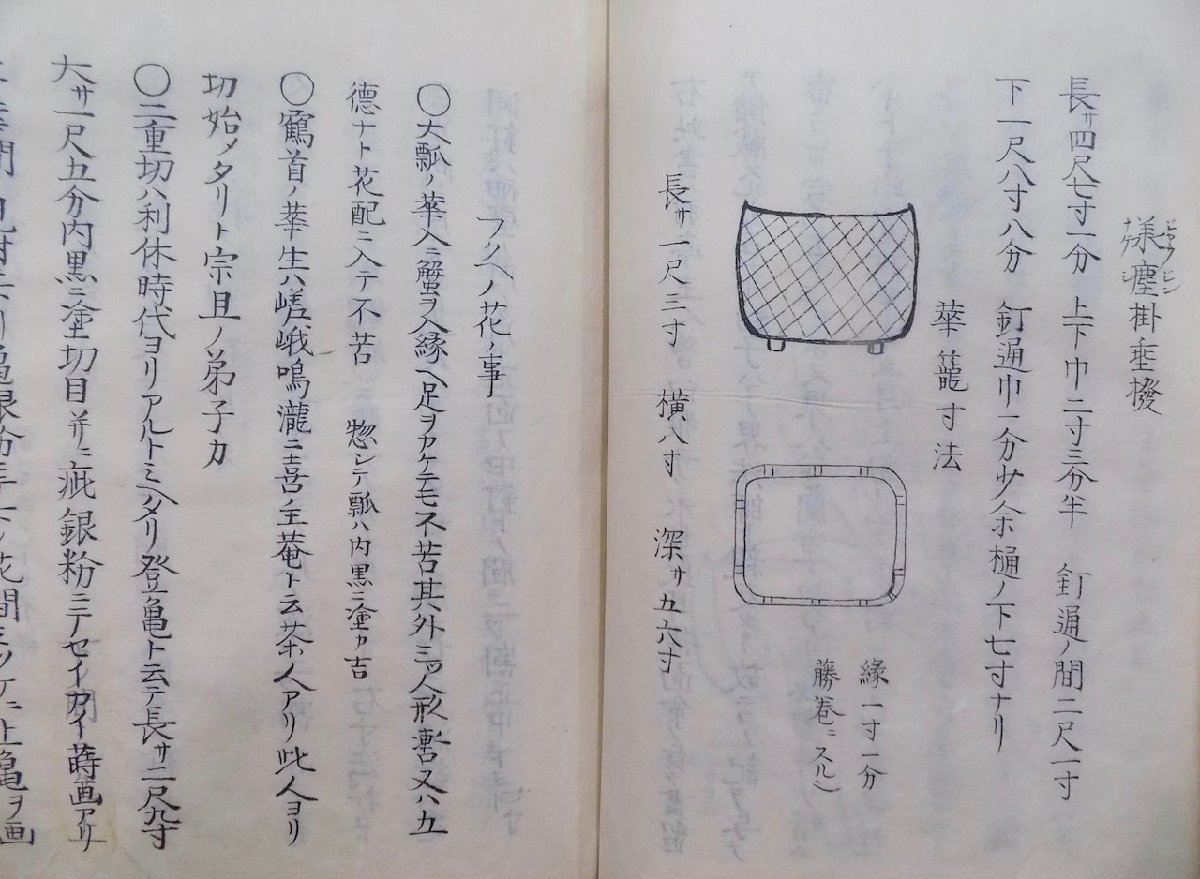 様塵掛垂撥
ジヤウジン
ナゲシ
長サ四尺七寸一分 上下巾二寸三分半 釘通ノ間二尺一寸
下一尺八寸八分 釘通巾一分サノ余樋ノ下七寸ナリ
華籠寸法
縁一寸一分
藤巻ニスル
長サ一尺三寸 横八寸 深サ五六寸
フクヘノ花ノ事
〇大瓢ノ華入ニ蟹ヲ入縁ヘ足ヲカケテモ不苦其外三ツ人形暫又ハ五
徳ナト花配ニ入テ不苦 惣シテ瓢ハ内黒ニ塗カ吉
〇鶴首ノ華生ハ嵯峨鳴瀧ニ喜ノ主菴ト云茶人アリ此人ヨリ
切始メタリト宗旦ノ弟子カ
〇二重切ハ利休時代ヨリアルトミヘタリ登亀ト云テ長サ二尺九寸
大サ一尺五分内黒ニ塗切目并ニ疵銀粉ニテセイカイ蒔画アリ
亀銀粉 花間 上亀ヲ画